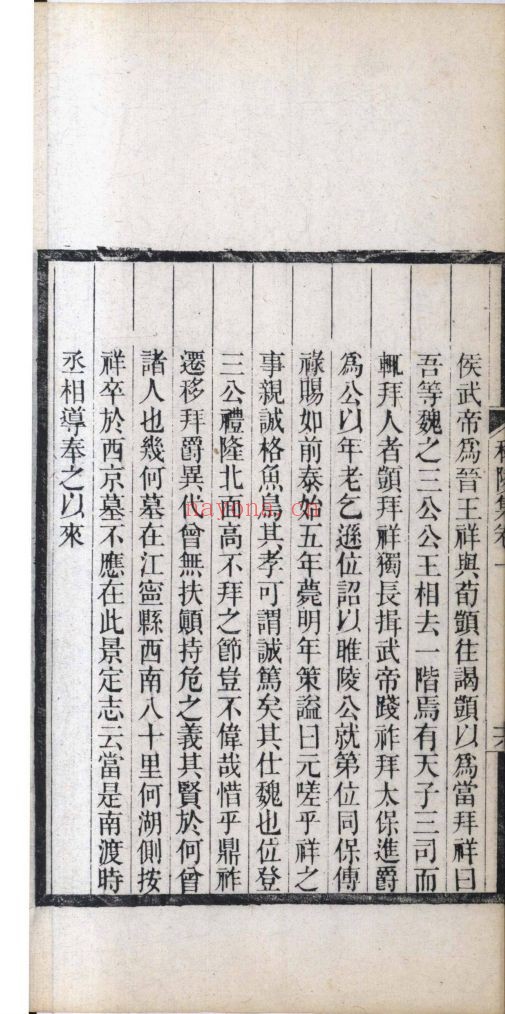 侯武帝爲晉王祥與荀顗往謁顗以爲當拜祥曰
吾等魏之三公公王相去一階焉有天子三司而
輒拜人者顗拜祥獨長揖武帝踐祚拜太保進爵
爲公以年老乞遜位詔以睢陵公就第位同保傅
祿賜如前泰始五年薨明年策謚曰元嗟乎祥之
事親誠格魚鳥其孝可謂誠篤矣其仕魏也位登
三公禮隆北面高不拜之節豈不偉哉惜乎鼎祚
遷移拜爵異代曾無扶顚持危之義其賢於何曾
諸人也幾何墓在江寧縣西南八十里何湖側按
祥卒於西京墓不應在此景定志云當是南渡時
丞相導奉之以來
nayona.cn